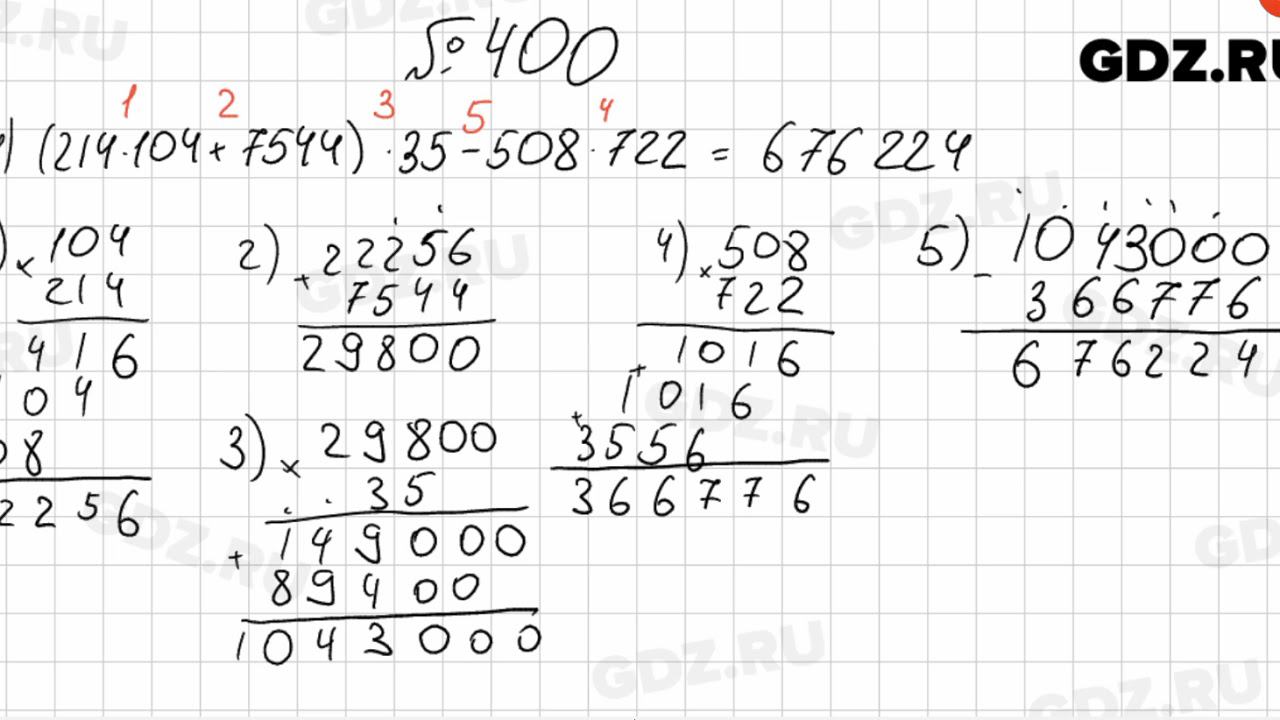 № 400
GDZ.RU
1 2 3 5 4
) (214·104+7544)·35-508·722 = 676224
) × 104
214
416
04
08
2256
2) + 22256
7544
29800
3) × 29800
35
+ 149000
89400
1043000
4) × 508
722
1016
+ 1016
+ 3556
366776
5) - 1043000
366776
676224